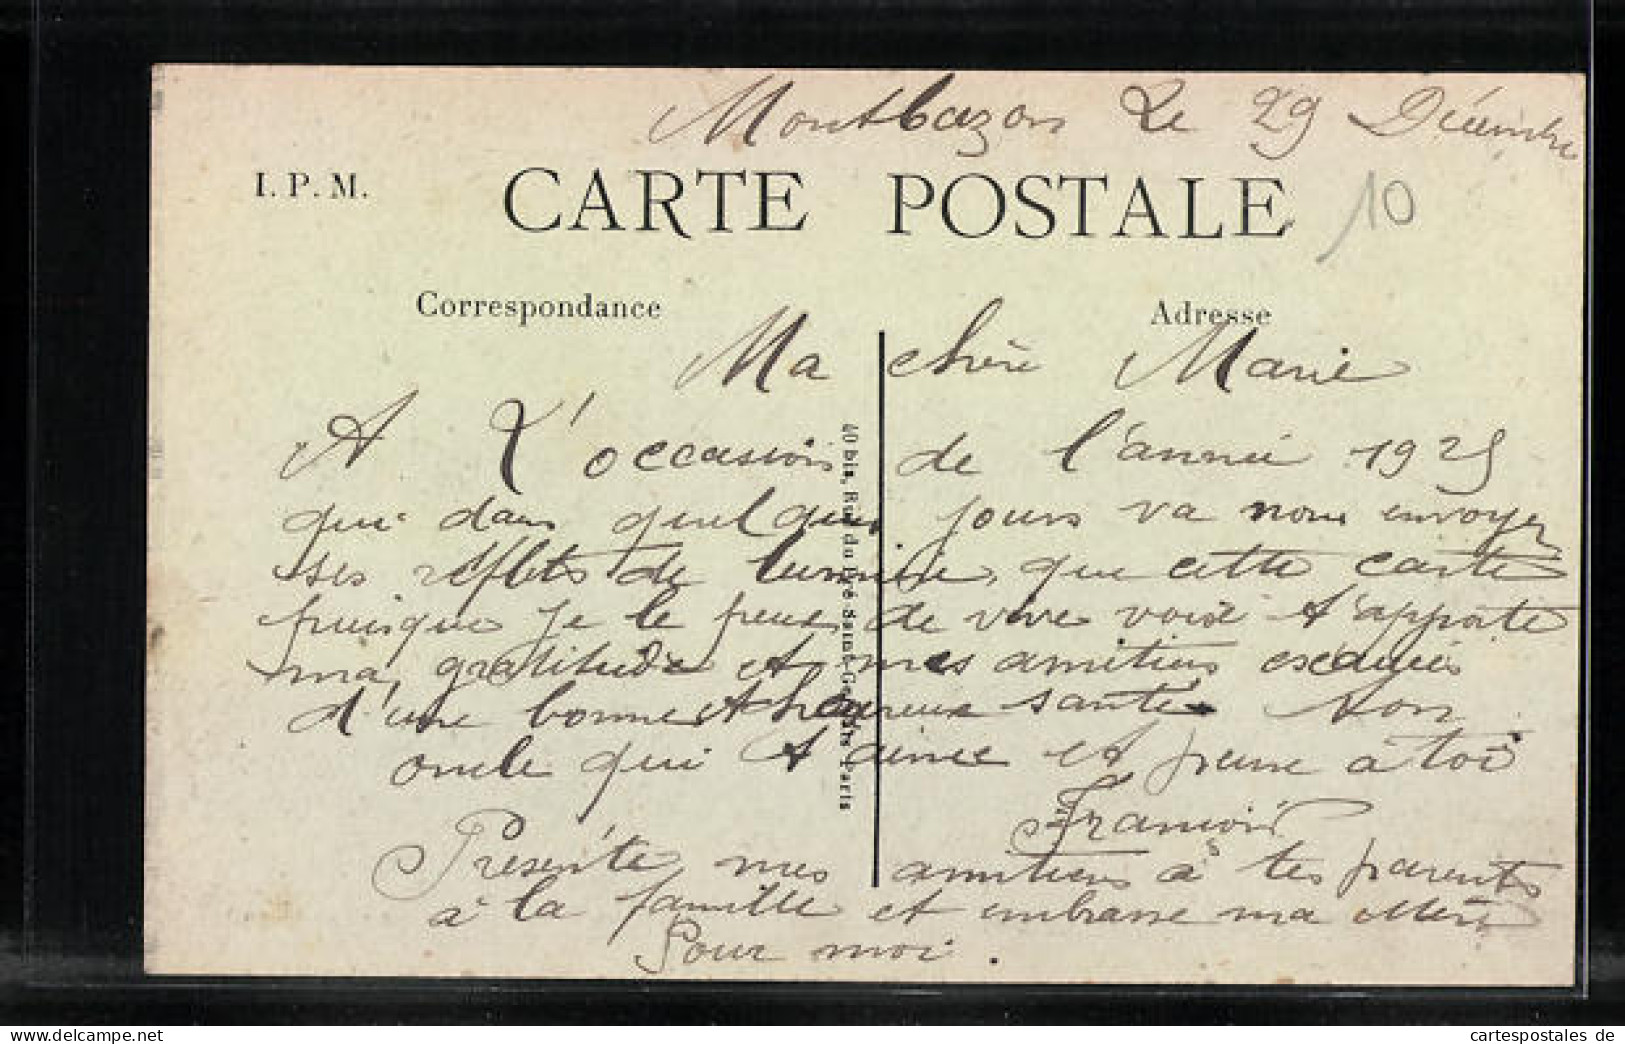 Montbazon Le 29 Décembre
I. P. M.
CARTE POSTALE
10
Correspondance
Adresse
Ma chère Marie
A L'occasion de l'année 1925
qui dans quelques jours va nous envoyer
ses réflets de lumière, que cette carte
puisque je le peux de vive voix t'apporte
ma gratitude et mes amitiés
d'une bonne et heureuse santé. Ton
oncle qui t'aime et pense à toi
François
Présente mes amitiés à tes parents
à la famille et embrasse ma Mère
Pour moi.
40 bis, Rue du Fbg Saint-Germain Paris
cartespostales de